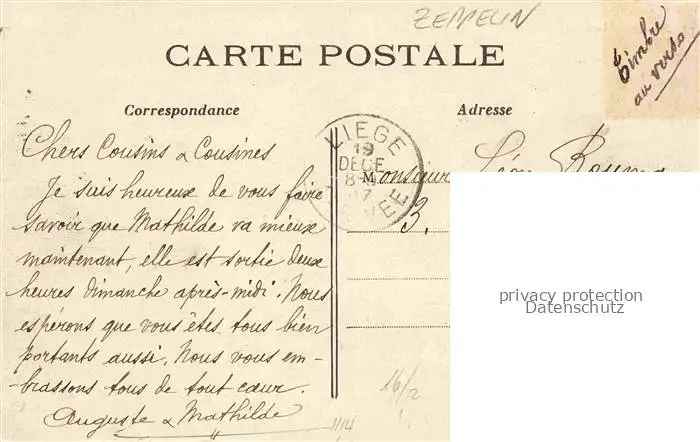 ZEPPELIN
CARTE POSTALE
Timbre
au verso
Correspondance
Adresse
LIEGE
19
DECE
Chers Cousins & Cousines
Monsieur Léon
Je suis heureux de vous faire
savoir que Mathilde va mieux
3.
maintenant, elle est sortie deux
heures dimanche après-midi. Nous
espérons que vous êtes tous bien
portants aussi. Nous vous em-
brassons tous de tout cœur.
Auguste & Mathilde
1114
16/2
privacy protection
Datenschutz